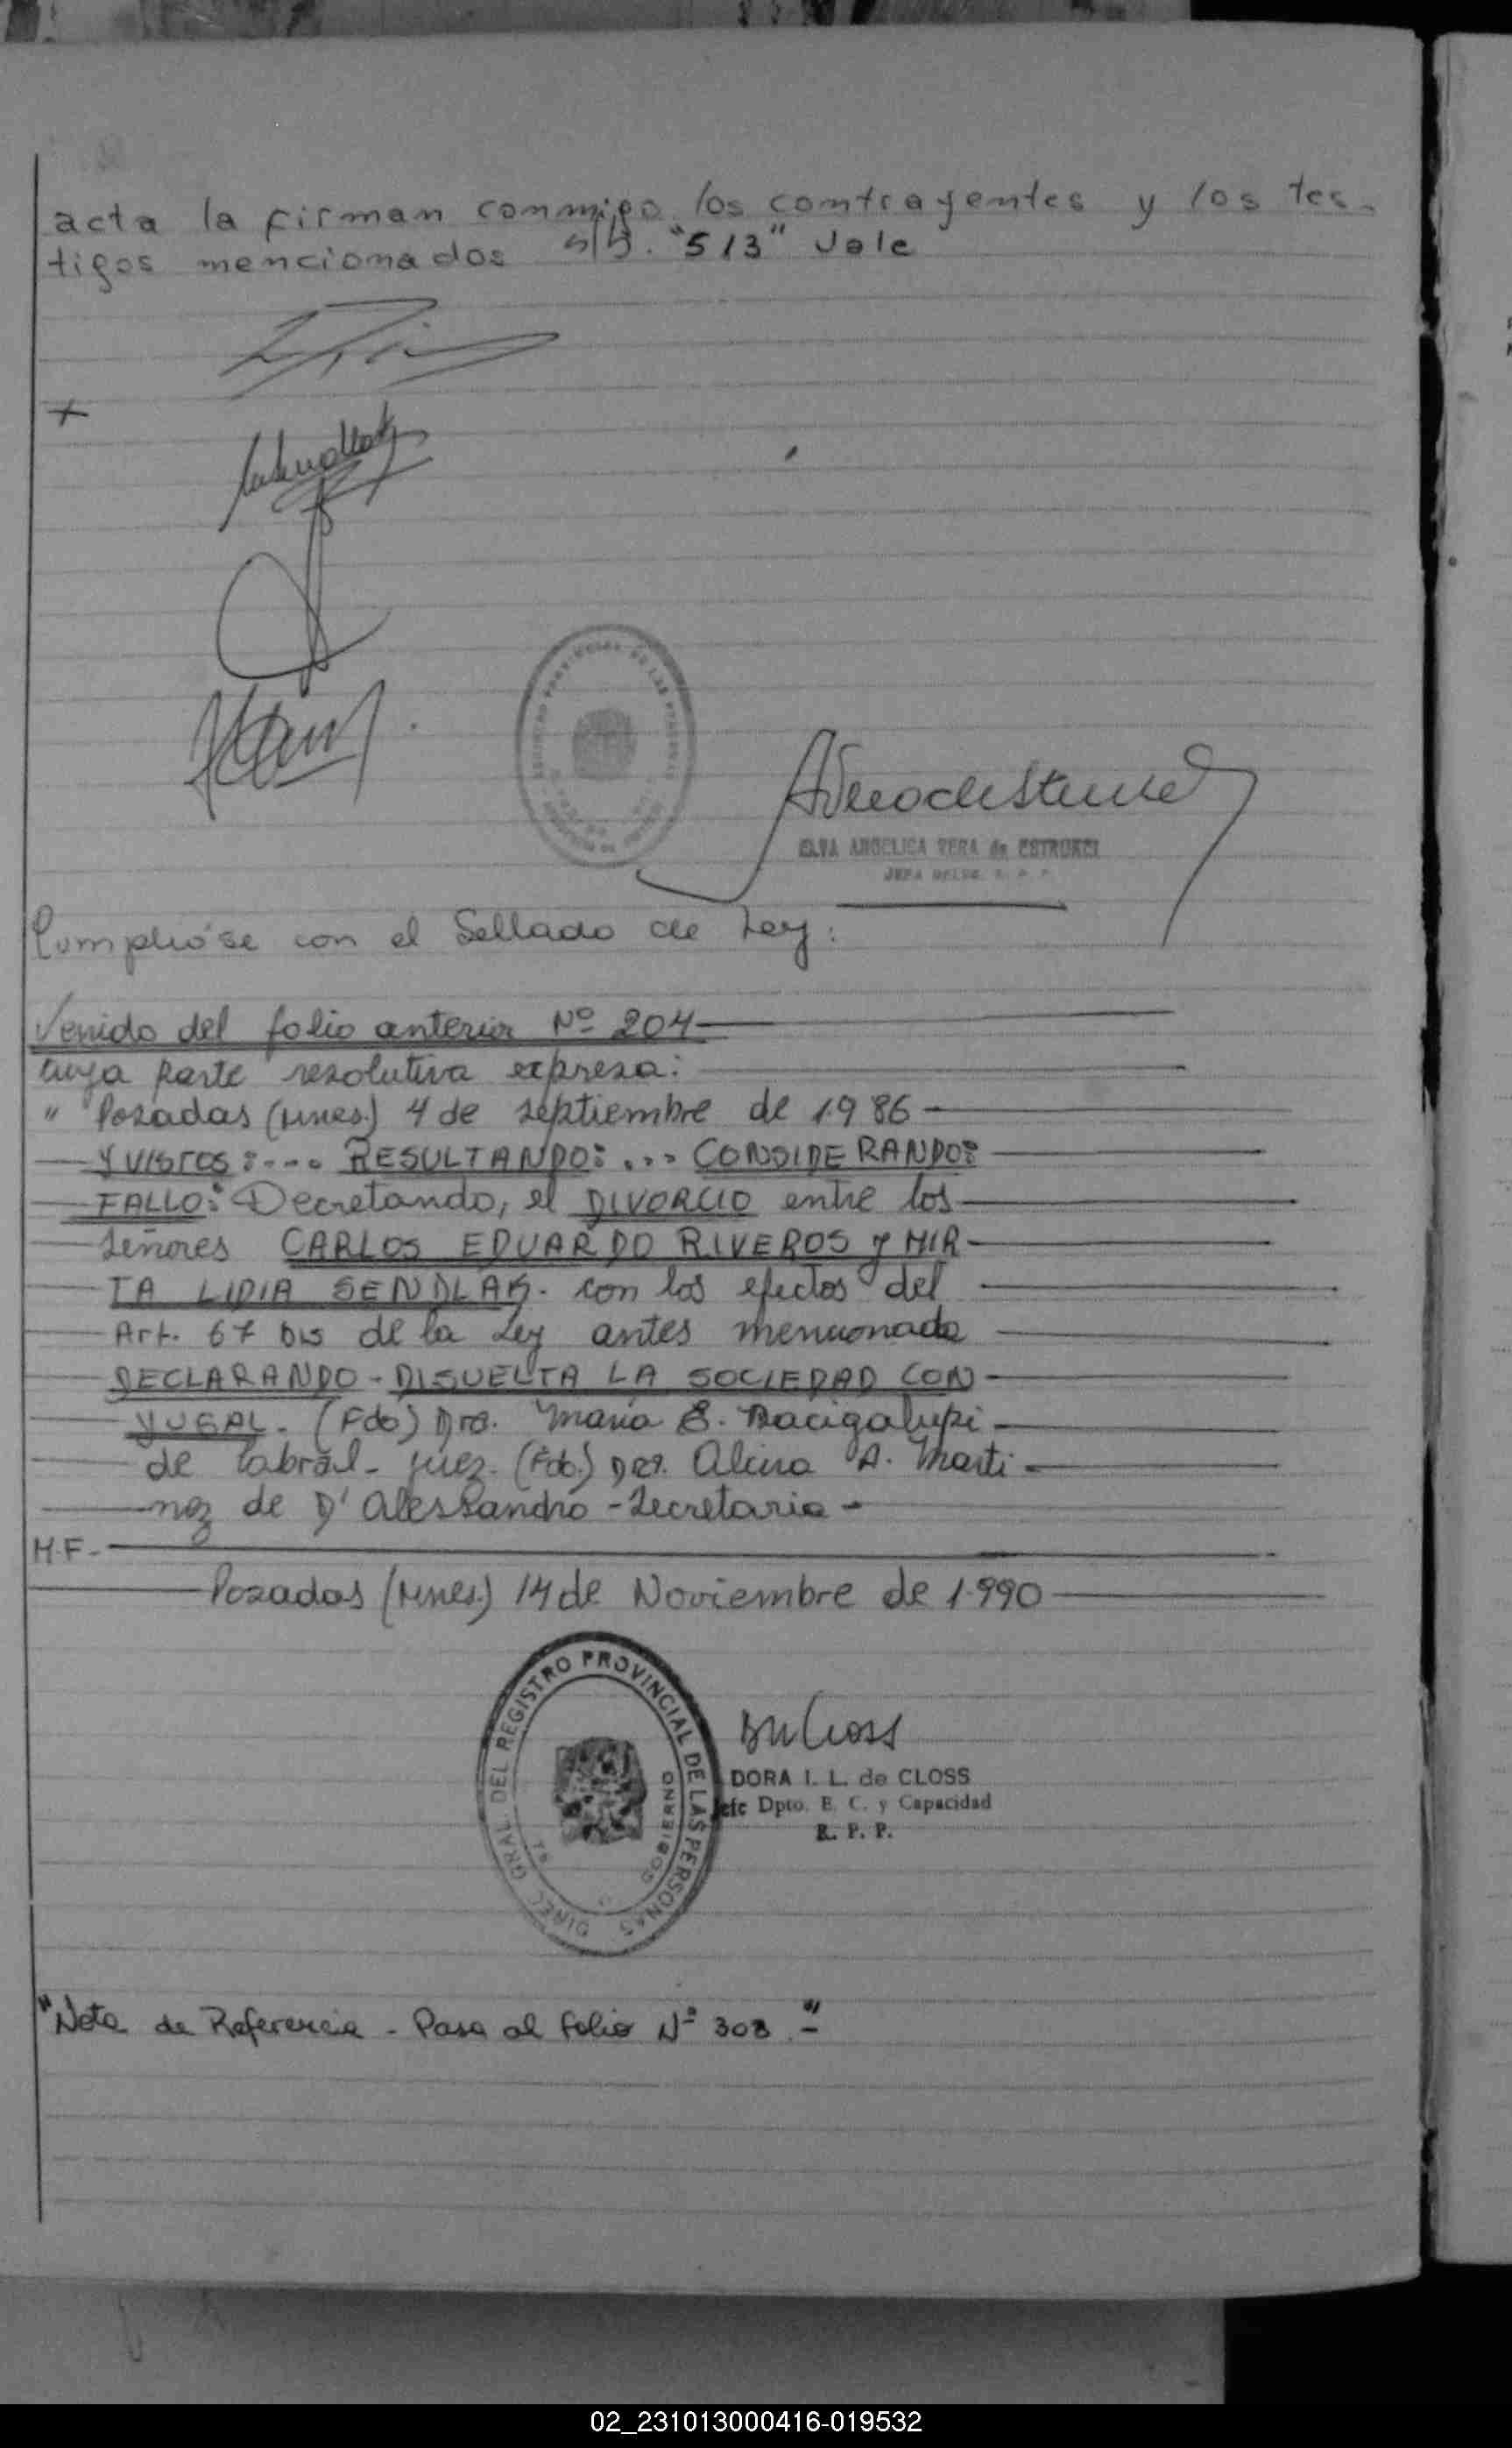 acta la firman conmigo los contrayentes y los tes-
tigos mencionados s/b. "513" Vale
Cumplióse con el Sellado de Ley:
Venido del folio anterior Nº 204
cuya parte resolutiva expresa:
" Posadas (Mnes.) 4 de septiembre de 1.986
Y VISTOS:.... RESULTANDO:... CONSIDERANDO:
FALLO: Decretando, el DIVORCIO entre los
Señores CARLOS EDUARDO RIVEROS y MIR-
TA LIDIA SENDLAK. con los efectos del
Art. 67 bis de la Ley antes mencionada
DECLARANDO - DISUELTA LA SOCIEDAD CON-
YUGAL. (Fdo) Dra. María E. Bacigalupi
de Cabral - juez. (Fdo.) Dra. Alcira A. Marti-
nez de D'Alessandro - Secretaria -
M.F.-
Posadas (Mnes.) 14 de Noviembre de 1.990
DIREC. GRAL. DEL REGISTRO PROVINCIAL DE LAS PERSONAS
GOBIERNO
DORA I. L. de CLOSS
Jefe Dpto. E. C. y Capacidad
R. P. P.
"Nota de Referencia - Pasa al folio Nº 308.-"
02_231013000416-019532